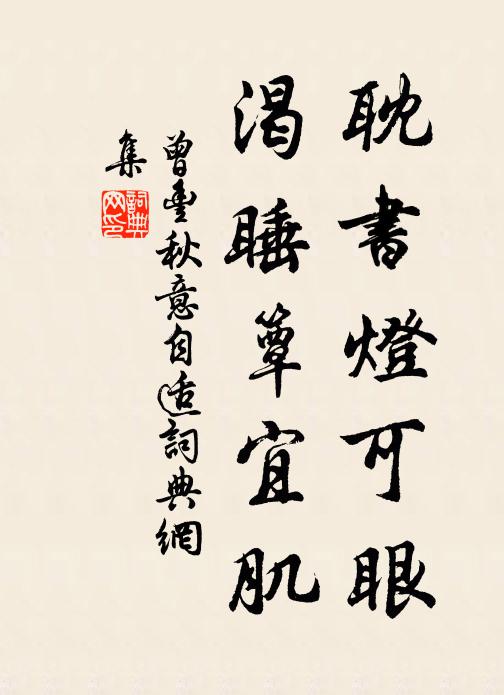 耽書燈可眼
渴睡簟宜肌
曾豊秋意自适詞典網
集
詞典網印